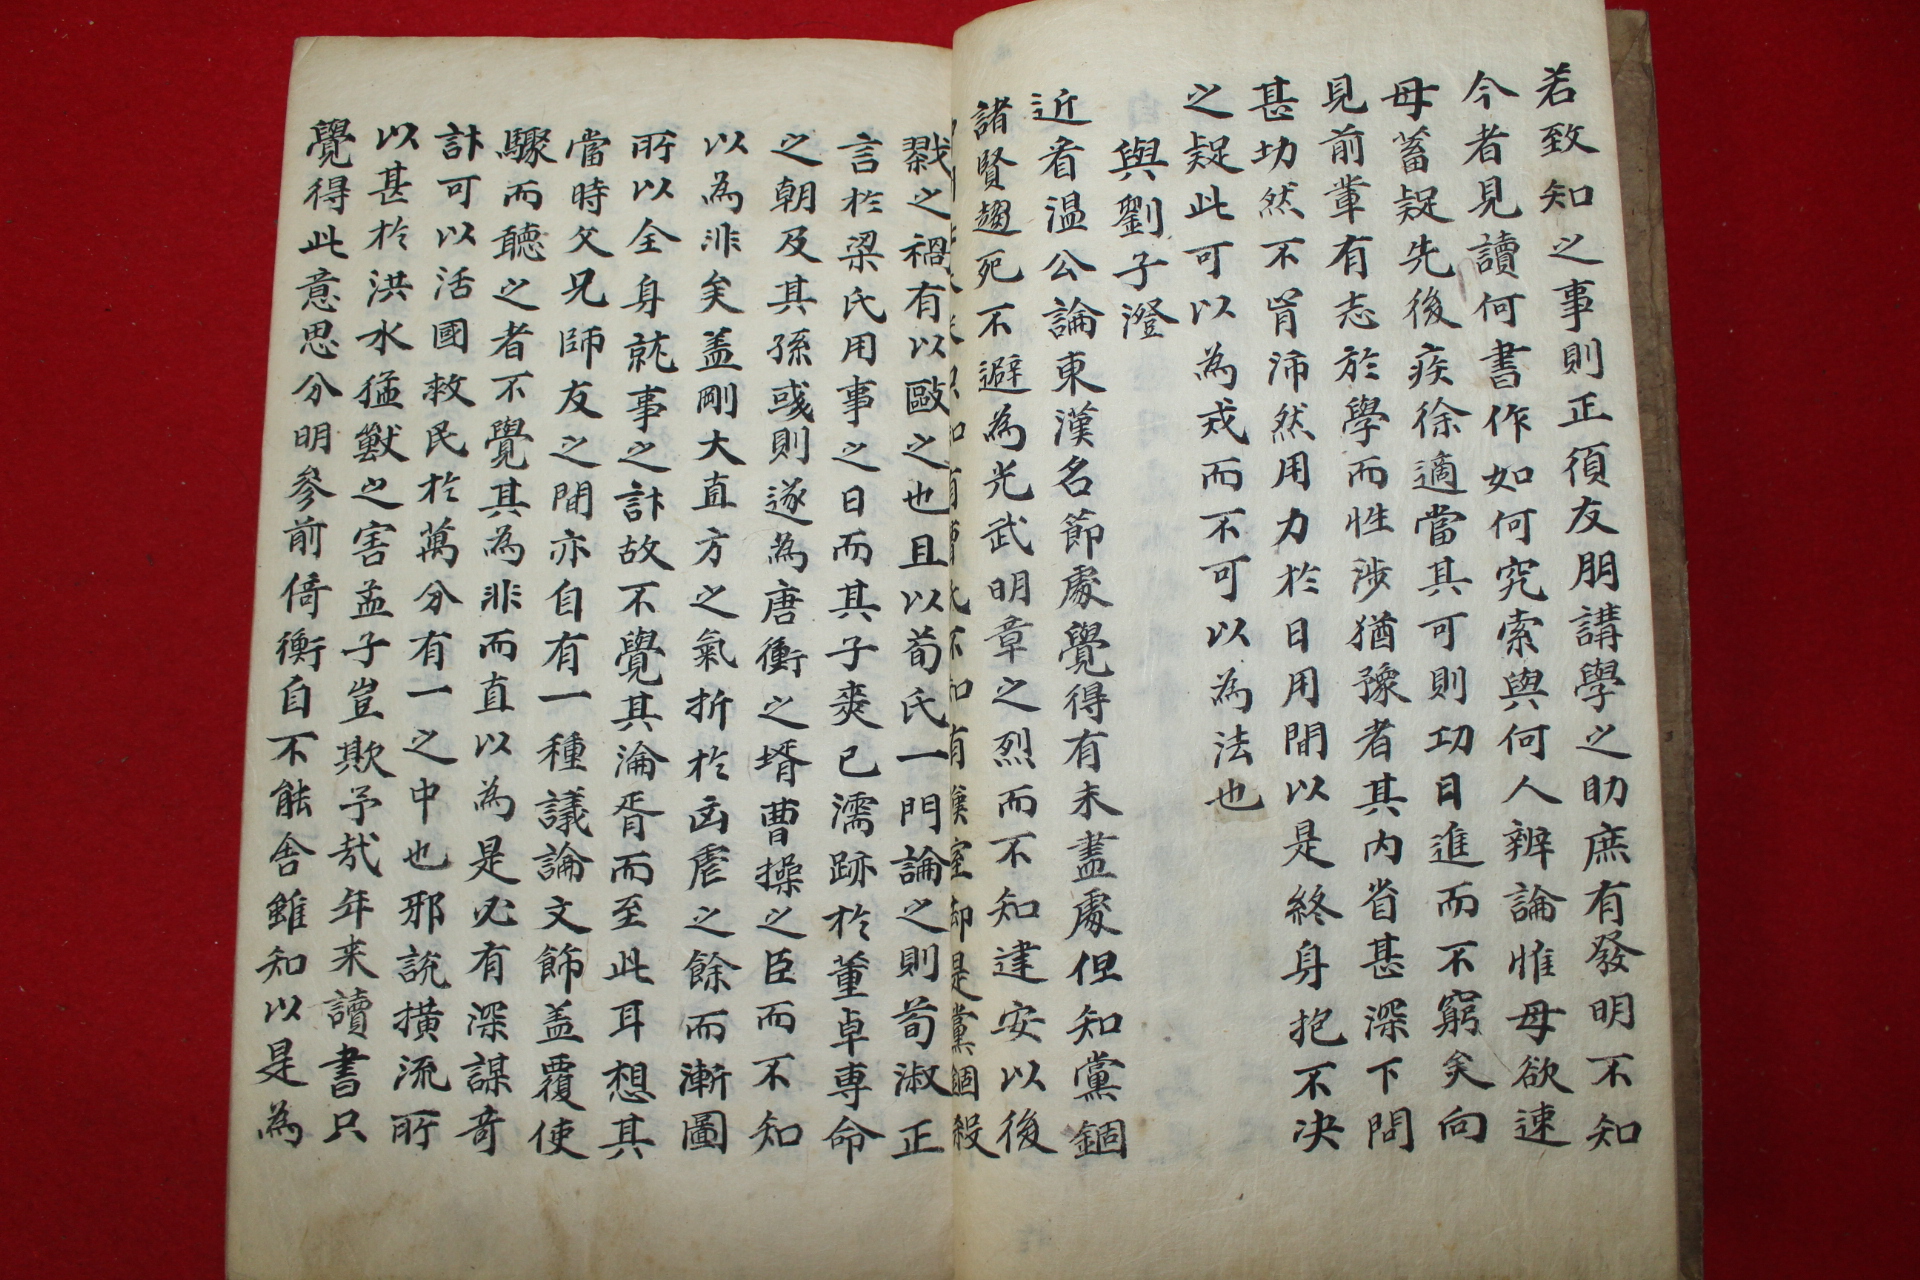 若致知之事則正湏友朋講學之助庶有發明不知
今者見讀何書作如何究索與何人辨論惟毋欲速
毋蓄疑先後疾徐適當其可則功日進而不窮矣向
見前輩有志於學而性涉猶豫者其内省甚深下問
甚切然不肯沛然用力於日用間以是終身抱不决
之疑此可以為戒而不可以為法也
與劉子澄
近看温公論東漢名節處覺得有未盡處但知黨錮
諸賢趨死不避為光武明章之烈而不知建安以後
有漢室却是黨錮殺
戮之禍有以敺之也且以荀氏一門論之則荀淑正
言於梁氏用事之日而其子爽已濡跡於董卓専命
之朝及其孫彧則遂為唐衡之壻曹操之臣而不知
以為非矣盖剛大直方之氣折於凶虐之餘而漸圖
所以全身就事之計故不覺其淪胥而至此耳想其
當時父兄師友之間亦自有一種議論文飾盖覆使
驟而聽之者不覺其為非而直以為是必有深謀奇
計可以活國救民於萬分有一之中也邪說横流所
以甚於洪水猛獸之害孟子豈欺予哉年来讀書只
覺得此意思分明參前倚衡自不能舎雖知以是為